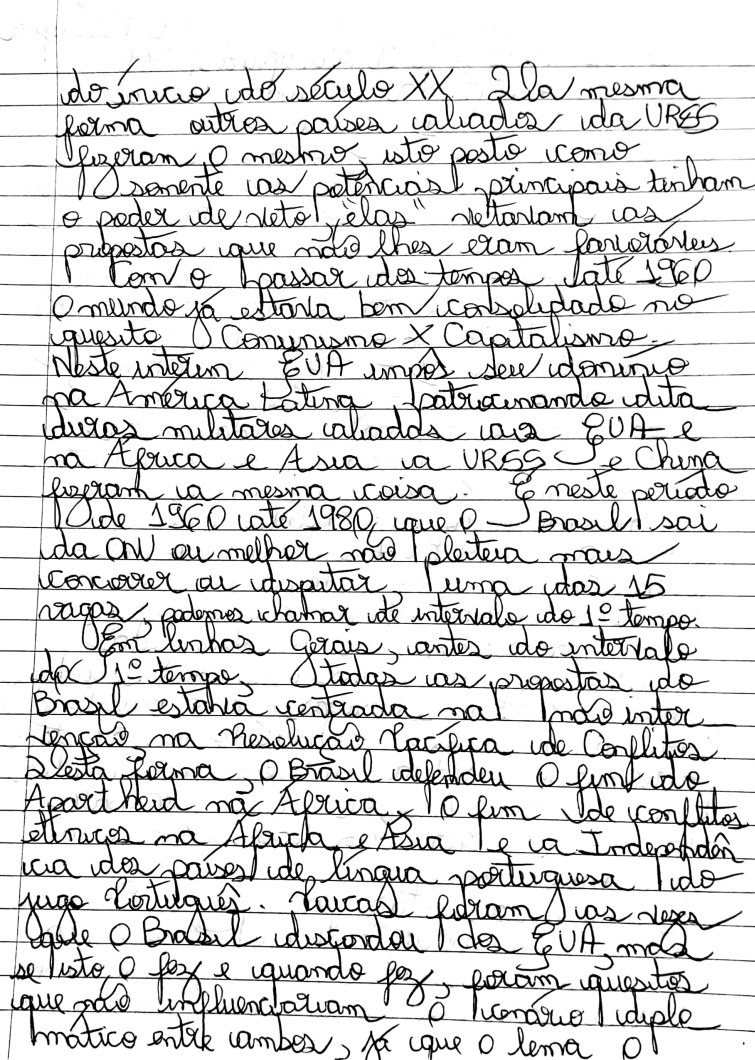 do início do século XX. Da mesma
forma outros países aliados da URSS
fizeram o mesmo isto posto como
somente as potências principais tinham
o poder de veto, "elas" vetavam as
propostas que não lhes eram favoráveis.
Com o passar dos tempos até 1960
O mundo já estava bem consolidado no
quesito Comunismo X Capitalismo.
Neste interim EUA impôs seu domínio
na América Latina patrocinando dita
duras militares aliadas aos EUA e
na África e Ásia a URSS e China
fizeram a mesma coisa. E neste período
de 1960 até 1980, que o Brasil sai
da ONU ou melhor não pleiteia mais
concorrer ou disputar uma das 15
vagas, podemos chamar de intervalo do 1º tempo.
Em linhas Gerais, antes do intervalo
do 1º tempo, todas as propostas do
Brasil estava centrada na não inter
venção na Resolução Pacífica de Conflitos
Desta forma, O Brasil defendeu O fim do
Apartheid na África, O fim de conflitos
étnicos na África e Ásia e a Independên
cia dos países de língua portuguesa do
jugo Português. Poucas foram as vezes
que O Brasil discordou dos EUA, mas
se isto O fez e quando fez, foram quesitos
que não influenciariam O cenário diplo
mático entre ambos, já que o lema O